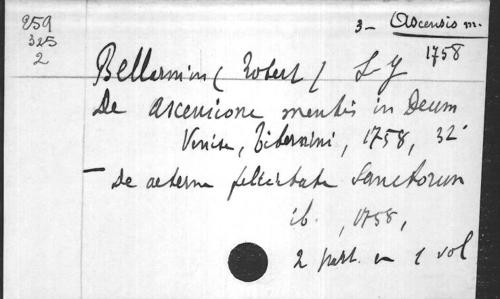 859
325
2
3- Ascensio m.
1758
Bellarmin (Robert) S.J
De Ascensione mentis in Deum
Venise, 1758, 32°
- De aeterna felicitate Sanctorum
ib. , 1758,
2 part. en 1 vol